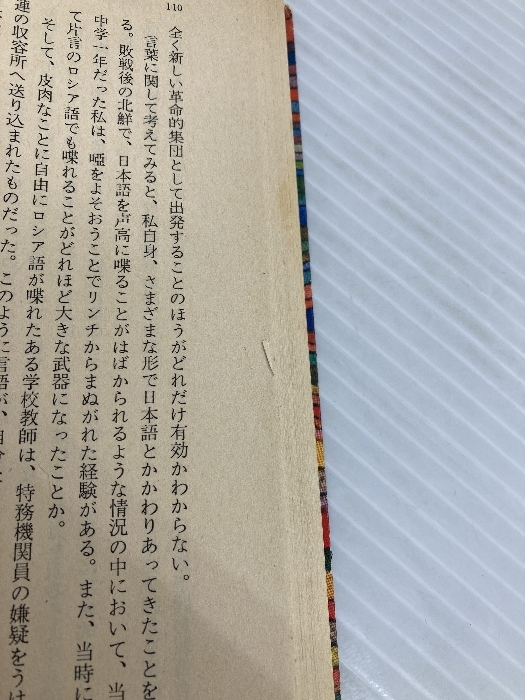 110
全く新しい革命的集団として出発することのほうがどれだけ有効かわからない。
言葉に関して考えてみると、私自身、さまざまな形で日本語とかかわりあってきたことを
る。敗戦後の北鮮で、日本語を声高に喋ることがはばかられるような情況の中において、当
中学一年だった私は、唖をよそおうことでリンチからまぬがれた経験がある。また、当時に
て片言のロシア語でも喋れることがどれほど大きな武器になったことか。
そして、皮肉なことに自由にロシア語が喋れたある学校教師は、特務機関員の嫌疑をうけ
連の収容所へ送り込まれたものだった。このように言語が、自